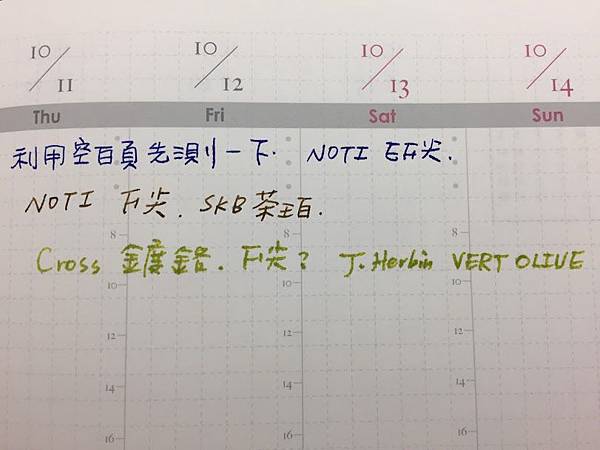 10/11 10/12 10/13 10/14
Thu Fri Sat Sun
利用空白頁先測一下. NOTI EF尖.
NOTI F尖. SKB 茶珀.
Cross 鍍鉻. F尖? J. Herbin VERT OLIVE
8 8 8
10 10 10
12 12 12
14 14 14
16 16 16